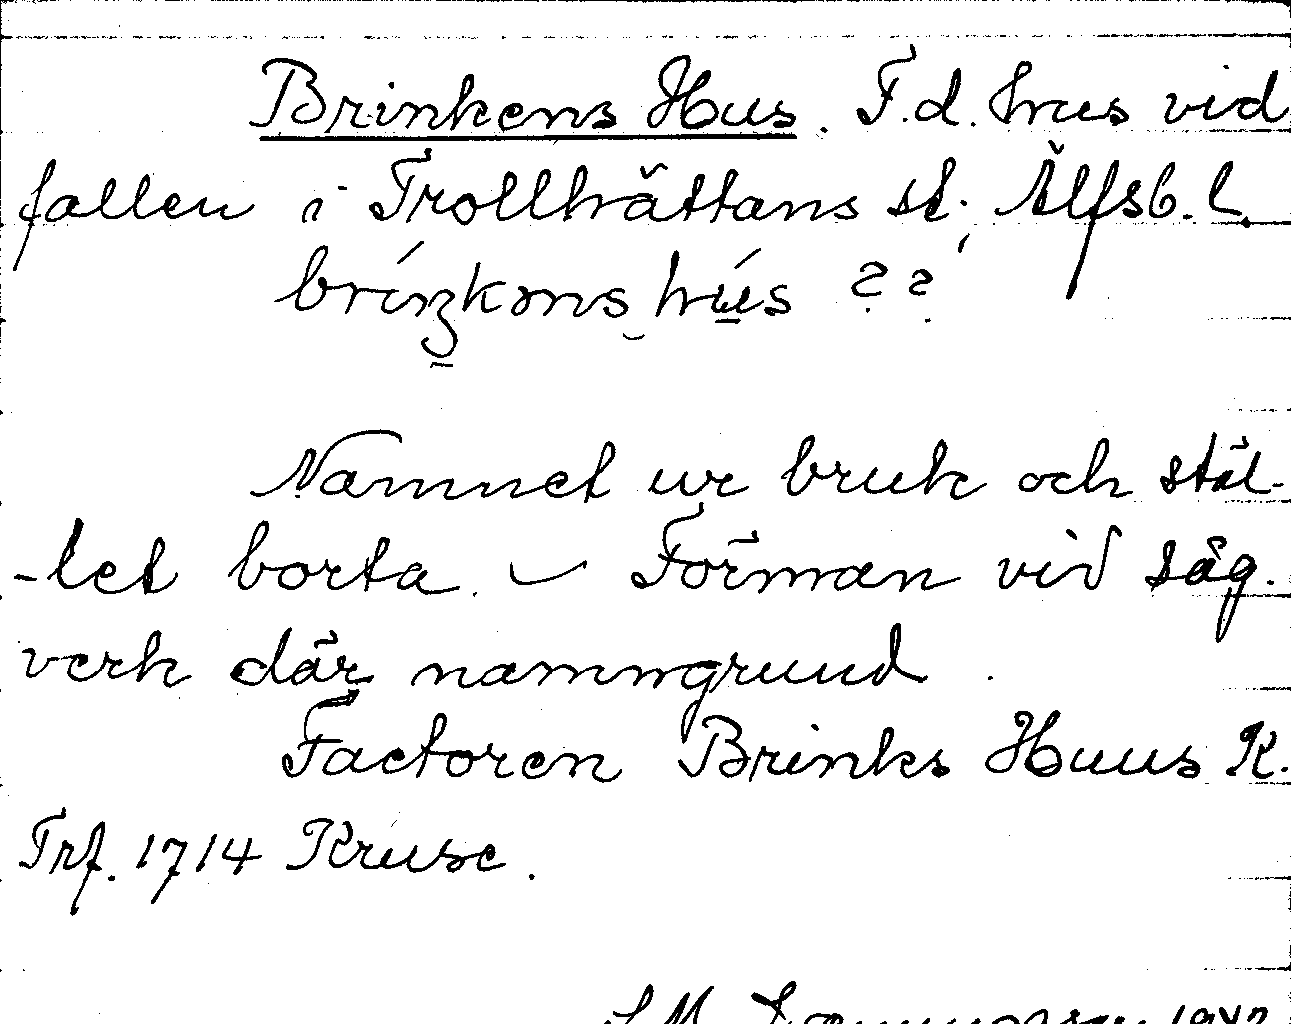 Brinkens Hus. F.d. hus vid
fallen i Trollhättans st., Älfsb. l.
bríŋkəns hús ??
Namnet ur bruk och stäl-
-let borta. – Förman vid såg.
verk där namngrund.
Factoren Brinks Huus K.
Trf. 1714 Kruse.